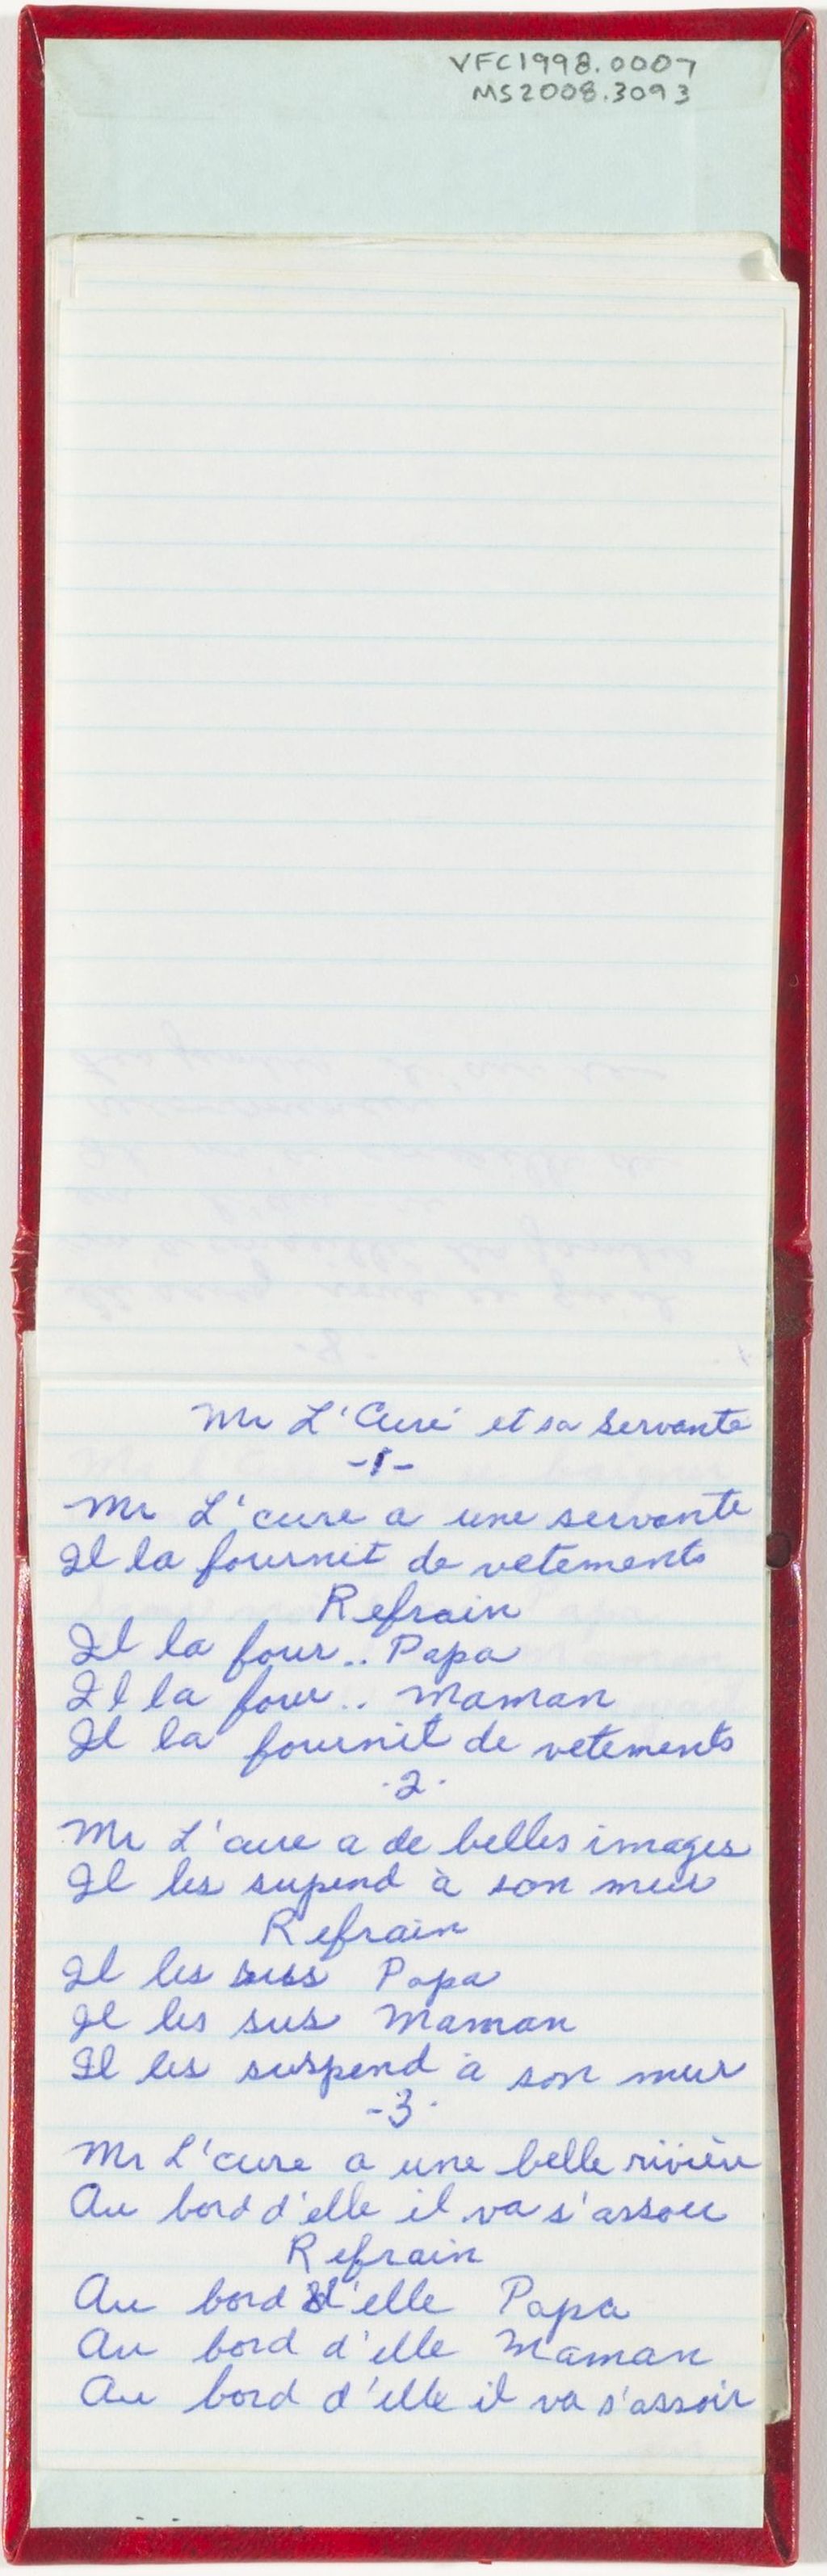 VFC1998.0007
MS2008.3093
Mr L'Curé et sa servante
-1-
Mr L'cure a une servante
Il la fournit de vetements
Refrain
Il la four.. Papa
Il la four.. Maman
Il la fournit de vetements
.2.
Mr L'cure a de belles images
Il les supend à son mur
Refrain
Il les suss Papa
Il les sus Maman
Il les suspend à son mur
-3-
Mr L'cure a une belle rivière
Au bord d'elle il va s'assoir
Refrain
Au bord d'elle Papa
Au bord d'elle Maman
Au bord d'elle il va s'assoir